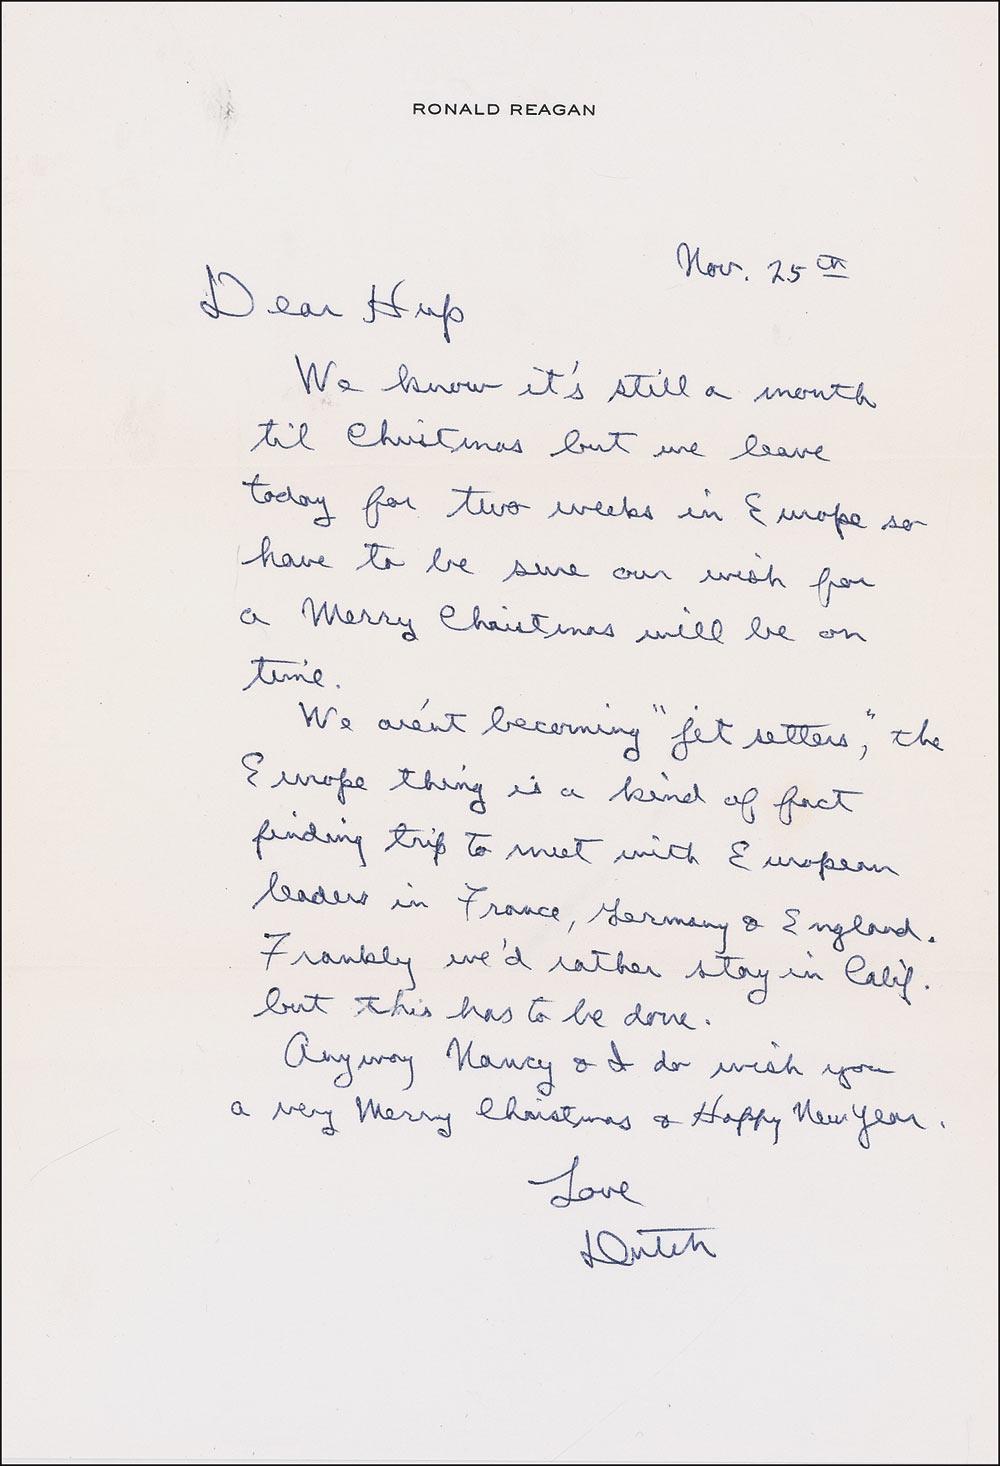 RONALD REAGAN
Nov. 25th
Dear Hup
We know it's still a month
til Christmas but we leave
today for two weeks in Europe so
have to be sure our wish for
a Merry Christmas will be on
time.
We are'nt becoming "jet setters", the
Europe thing is a kind of fact
finding trip to meet with European
leaders in France, Germany & England.
Frankly we'd rather stay in Calif.
but this has to be done.
Anyway Nancy & I do wish you
a very Merry Christmas & Happy New Year.
Love
Dutch